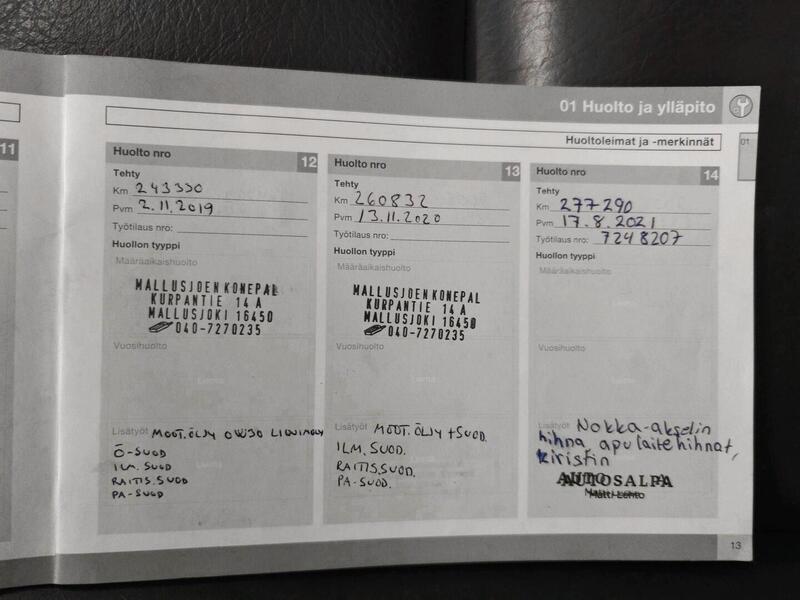 01 Huolto ja ylläpito
Huoltoleimat ja -merkinnät
01
11
Huolto nro
12
Tehty
Km 243330
Pvm 2.11.2019
Työtilaus nro:
Huollon tyyppi
Määräaikaishuolto
MALLUSJOEN KONEPAL
KURPANTIE 14 A
MALLUSJOKI 16450
040-7270235
Vuosihuolto
Leima
Lisätyöt MOOT.ÖLJY 0W30
Ö-SUOD
ILM. SUOD
RAITIS.SUOD
PA-SUOD
Huolto nro
13
Tehty
Km 260832
Pvm 13.11.2020
Työtilaus nro:
Huollon tyyppi
Määräaikaishuolto
MALLUSJOEN KONEPAL
KURPANTIE 14 A
MALLUSJOKI 16450
040-7270235
Vuosihuolto
Leima
Lisätyöt MOOT. ÖLJY +SUOD.
ILM. SUOD.
RAITIS.SUOD.
PA-SUOD.
Huolto nro
14
Tehty
Km 277290
Pvm 17.8.2021
Työtilaus nro: 7248207
Huollon tyyppi
Määräaikaishuolto
Vuosihuolto
Leima
Lisätyöt Nokka-akselin
hihna, apulaitehihnat,
kiristin
AUTOSALPA
Matti Lehto
13